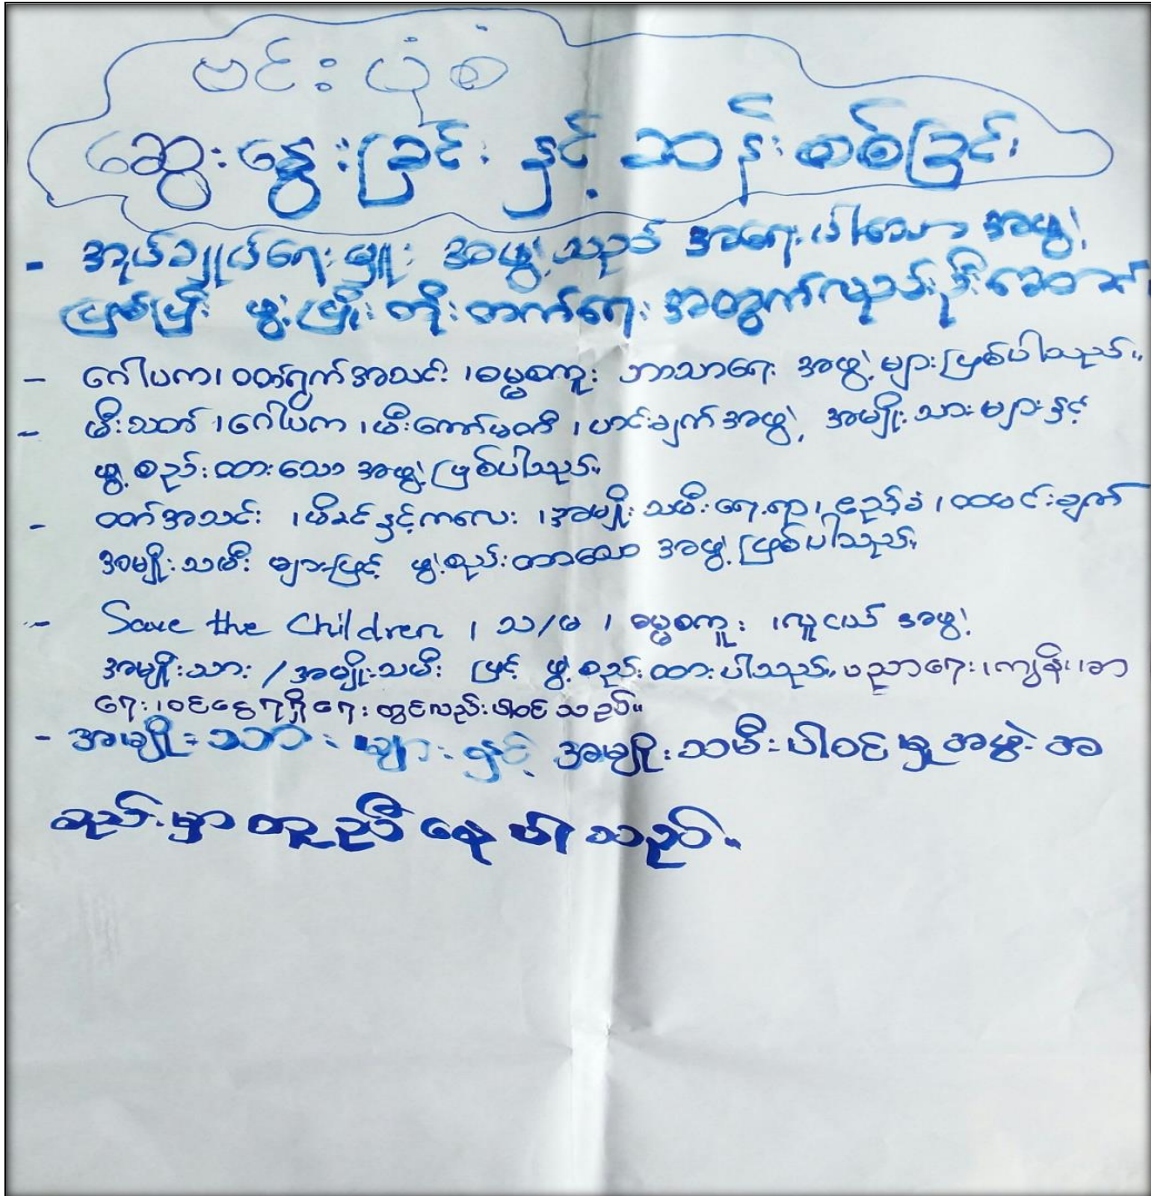 ဗင်းပုံစံ
ဆွေးနွေးခြင်း နှင့် ဆန်းစစ်ခြင်း
- အုပ်ချုပ်ရေးမှူး အဖွဲ့သည် အရေးပါသော အဖွဲ့
ဖြစ်ပြီး ဖွံ့ဖြိုး တိုးတက်ရေး အတွက်လည်း
- ဂေါပက၊ ဝတ်ရွတ်အသင်း ၊ဓမ္မစကူး ဘာသာရေး အဖွဲ့ များဖြစ်ပါသည်။
- မီးသတ် ၊ဂေါပက ၊မီးကော်မတီ ၊ဟင်းချက်အဖွဲ့ အမျိုးသားများနှင့်
ဖွဲ့စည်းထားသော အဖွဲ့ဖြစ်ပါသည်။
- ထတ်အသင်း ၊မိခင်နှင့်ကလေး ၊အမျိုးသမီးရေးရာ၊ ဧည့်ခံ ၊ထမင်းချက်
အမျိုးသမီး များဖြင့် ဖွဲ့စည်းထားသော အဖွဲ့ ဖြစ်ပါသည်။
- Save the Children ၊ သ/မ ၊ ဓမ္မစကူး ၊လူငယ် အဖွဲ့
အမျိုးသား / အမျိုးသမီး ဖြင့် ဖွဲ့စည်းထားပါသည်။ ပညာရေး၊ကျန်းမာ
ရေး၊ဝင်ငွေရရှိရေးတွင်လည်းပါဝင်သည်။
- အမျိုးသားများနှင့် အမျိုးသမီးပါဝင်မှု အဖွဲ့အ
စည်းမှာ တူညီနေပါသည်။